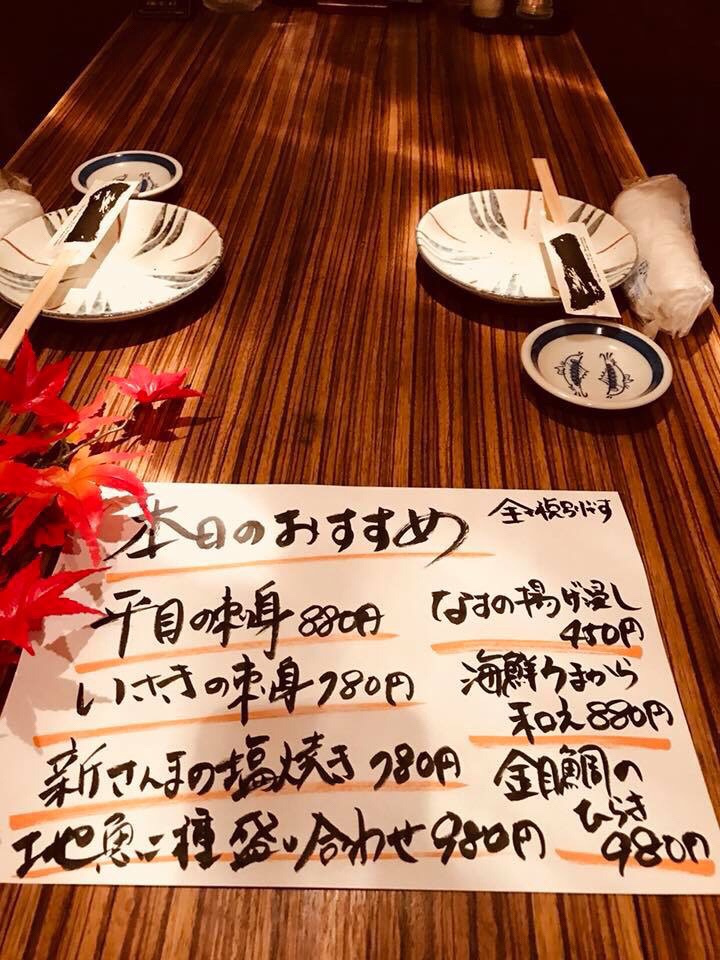 本日のおすすめ
全て税別です
平目の刺身 880円
いさきの刺身 780円
新さんまの塩焼き 780円
地魚二種盛り合わせ 980円
なすの揚げ浸し
450円
海鮮うまから
和え 880円
金目鯛の
ひらき
980円